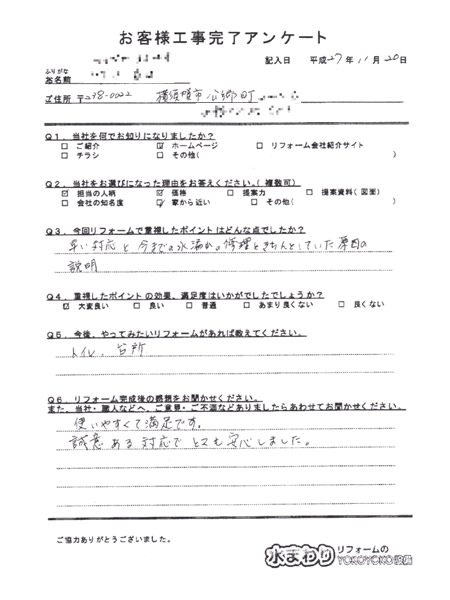 お客様工事完了アンケート
記入日 平成27年11月20日
ふりがな
お名前
ご住所 〒238-0022 横須賀市公郷町
Q1.当社を何でお知りになりましたか?
□ ご紹介 ☑ ホームページ □ リフォーム会社紹介サイト
□ チラシ □ その他( )
Q2.当社をお選びになった理由をお答えください。(複数可)
☑ 担当の人柄 ☑ 価格 □ 提案力 □ 提案資料(図面)
□ 会社の知名度 ☑ 家から近い □ その他( )
Q3.今回リフォームで重視したポイントはどんな点でしたか?
早い対応と今までの水漏れの修理ときちんとしていた原因の
説明
Q4.重視したポイントの効果、満足度はいかがでしたでしょうか?
☑ 大変良い □ 良い □ 普通 □ あまり良くない □ 良くない
Q5.今後、やってみたいリフォームがあれば教えてください。
トイレ、台所
Q6.リフォーム完成後の感想をお聞かせください。
また、当社・職人などへ、ご意見・ご不満などありましたらあわせてお聞かせください。
使いやすくて満足です。
誠意ある対応でとても安心しました。
ご協力ありがとうございました。
水まわりリフォームのYOKOYOKO設備